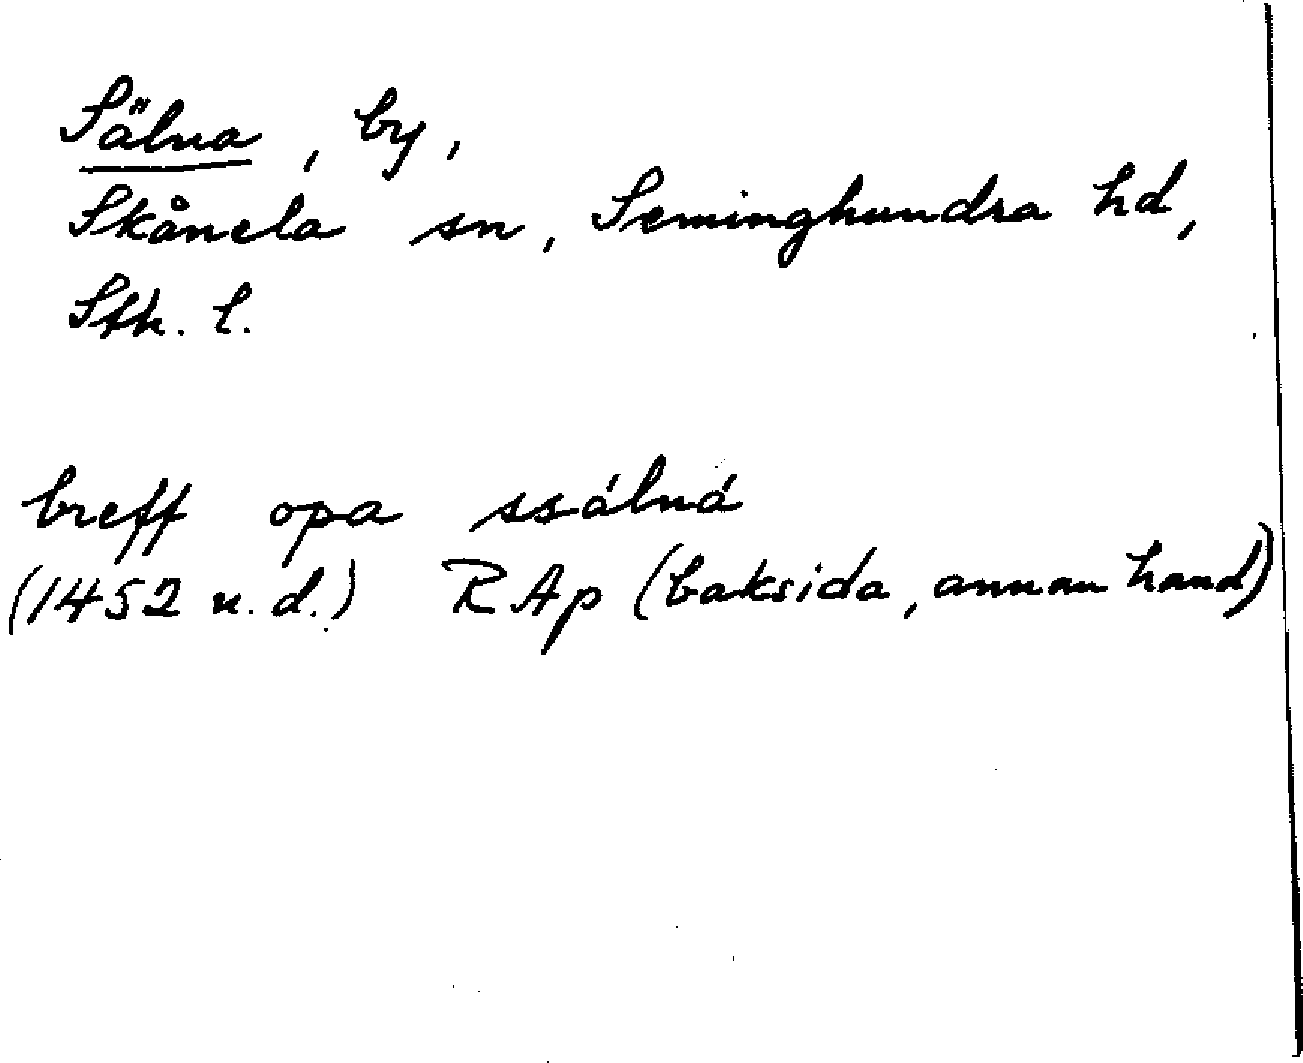 Sälna, by,
Skånela sn, Seminghundra hd,
Sth. l.
breff opa ssálná
(1452 u.d.) RAp (baksida, annan hand)